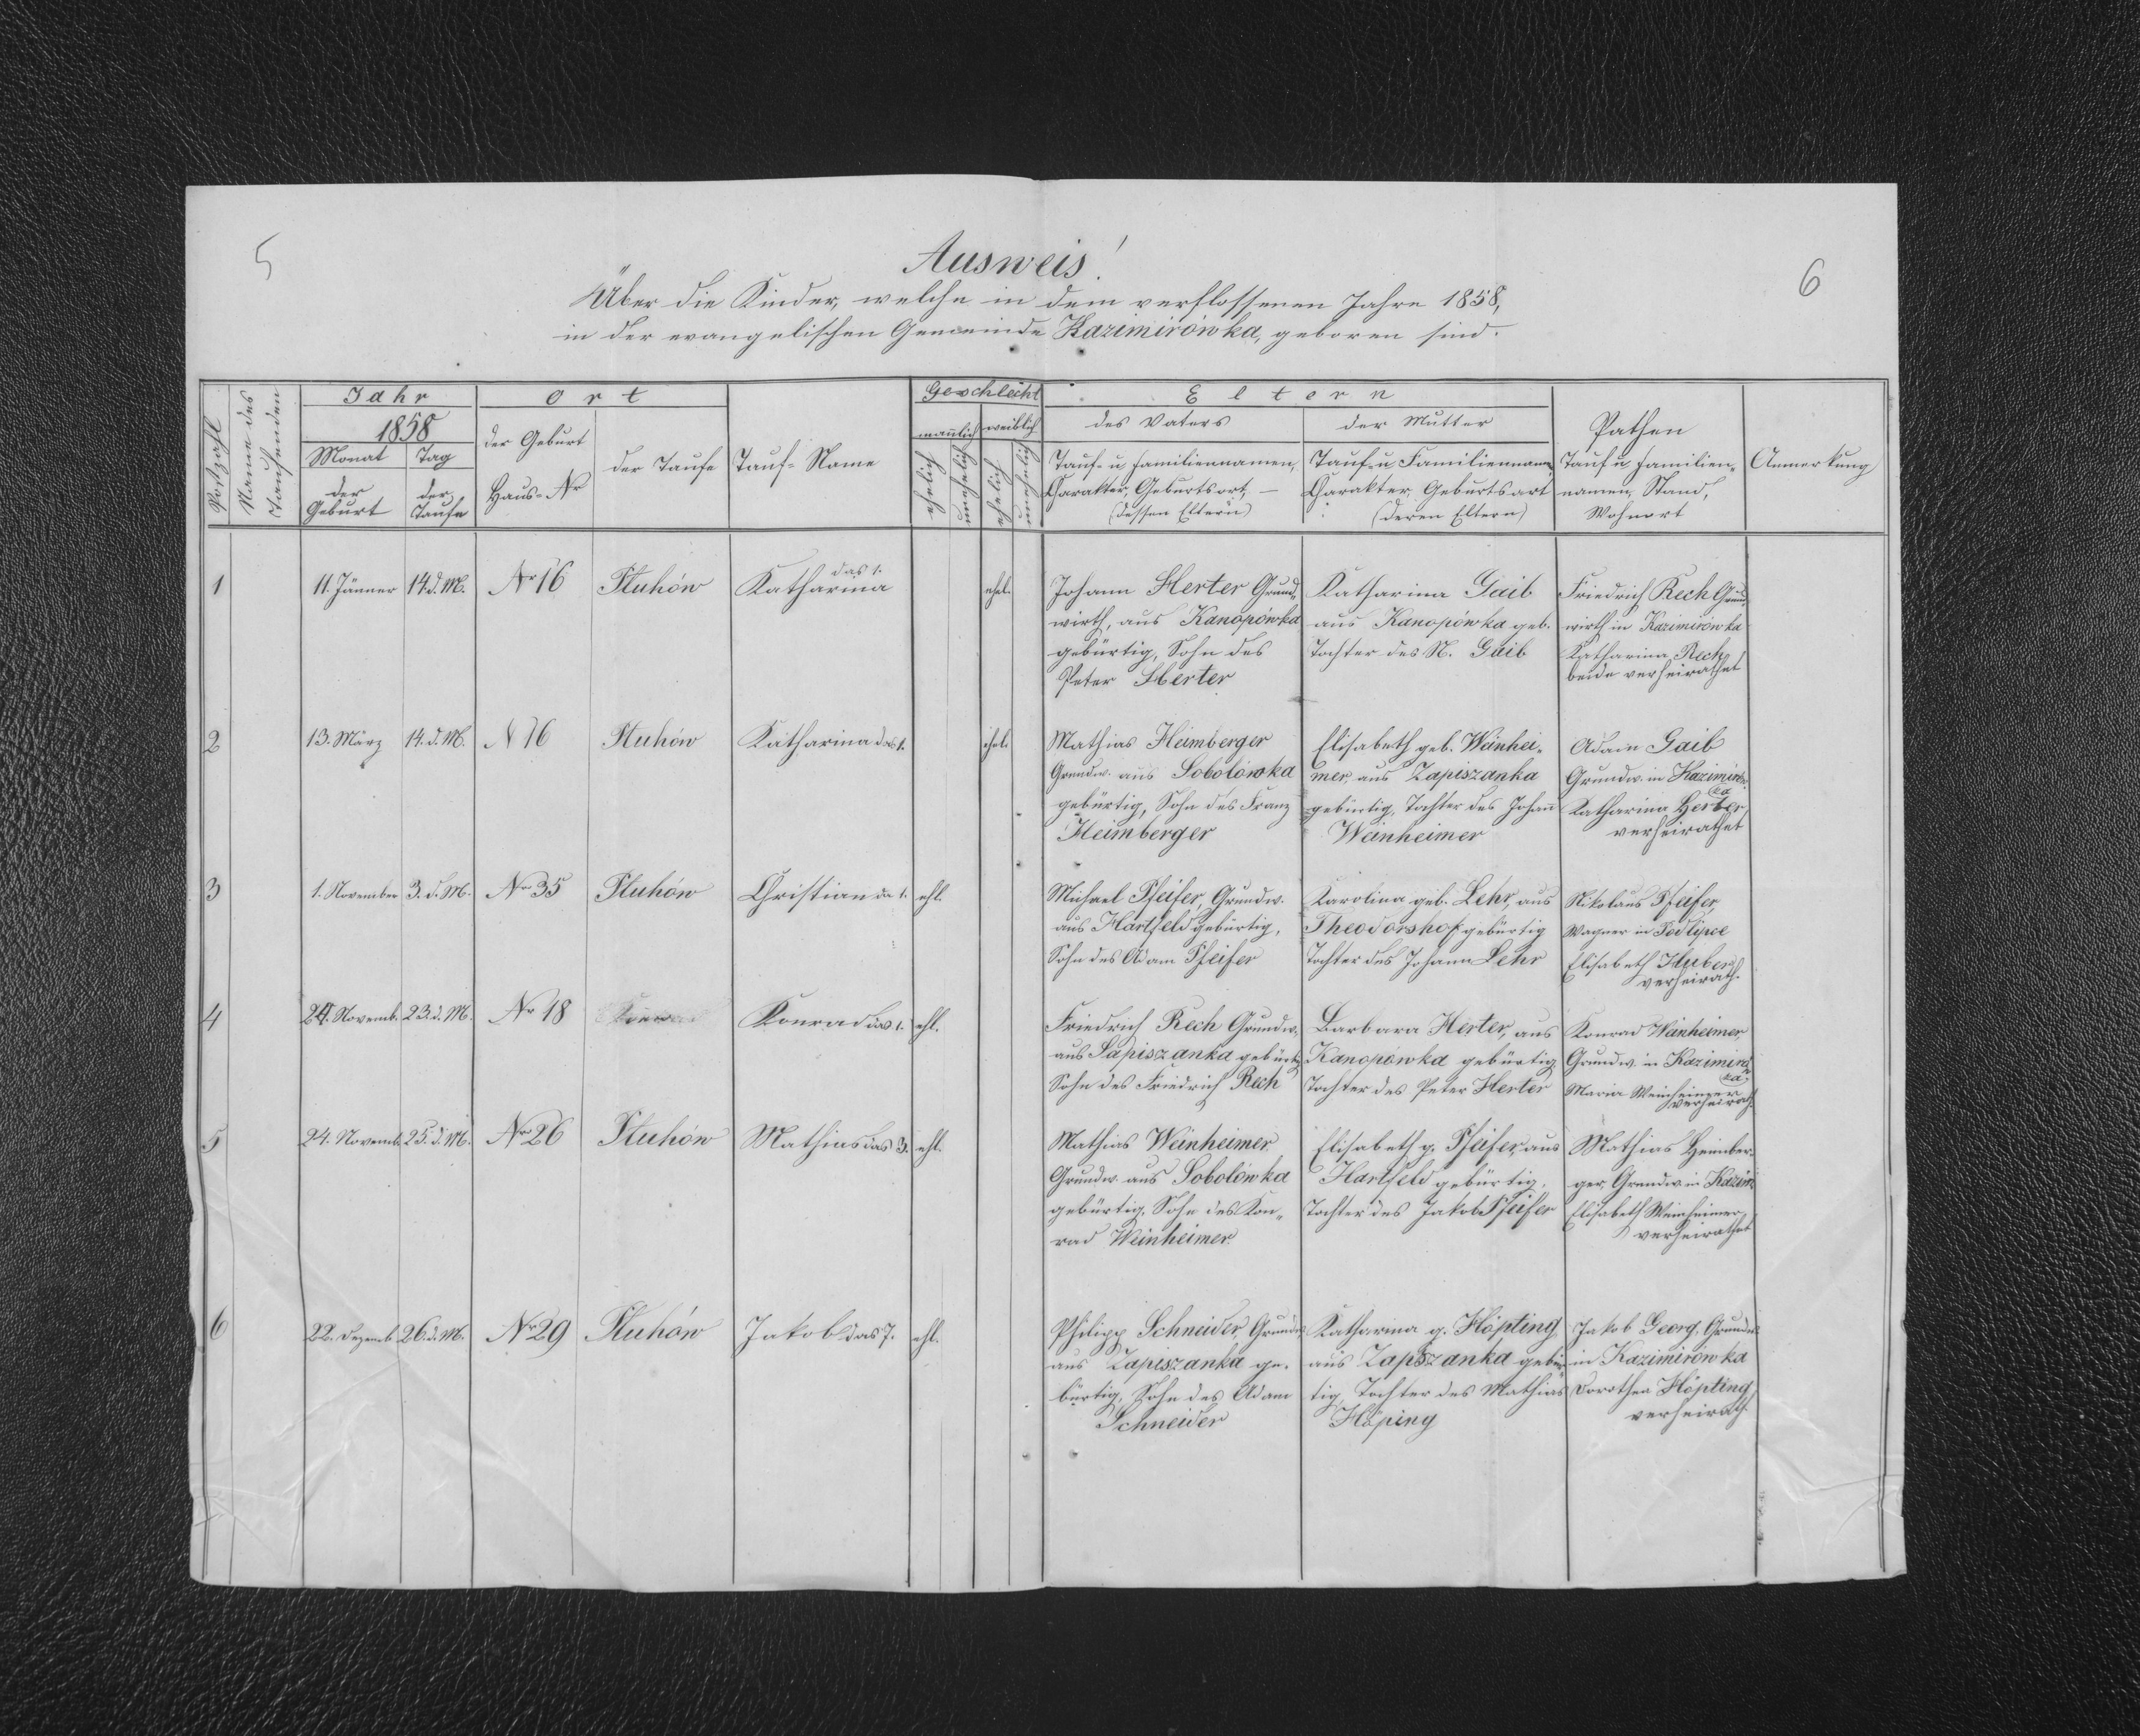 5
6
Ausweis!
Über die Kinder, welche in dem verflossenen Jahre 1858,
in der evangelischen Gemeinde Kazimirówka, geboren sind.
Postzahl
Namen des Taufenden
Jahr
1858
Monat
der Geburt
Tag
der Taufe
Ort
der Geburt
Haus-Nr
der Taufe
Tauf-Name
Geschlecht
mañlich
weiblich
ehelich
unehelich
ehelich
unehelich
Eltern
des Vaters
Tauf- u Familiennamen,
Charakter, Geburtsort, –
(dessen Eltern)
der Mutter
Tauf- u Familiennam.
Charakter, Geburtsort
(deren Eltern)
Pathen
Tauf u Familien-
namen, Stand,
Wohnort
Anmerkung
1
11. Jänner
14. d. M.
Nr 16
Pluhów
Katharina das 1.
ehel.
Johann Herter Grund-
wirth, aus Kanopówka
gebürtig, Sohn des
Peter Herter
Katharina Gaib
aus Kanopówka geb.
Tochter des N. Gaib
Friedrich Rech Grund-
wirth in Kazimirówka
Katharina Rech
beide verheirathet
2
13. März
14. d. M.
N 16
Pluhów
Katharina das 1.
ehel.
Mathias Heimberger
Grundw. aus Sobolówka
gebürtig, Sohn des Franz
Heimberger
Elisabeth geb. Weinhei-
mer, aus Zapiszanka
gebürtig, Tochter des Johañ
Weinheimer
Adam Gaib
Grundw. in Kazimirów
ka
Katharina Herter
verheirathet
3
1. November
3. d. M.
Nr 35
Pluhów
Christian das 1.
ehl.
Michael Pfeifer, Grundw.
aus Hartfeld gebürtig,
Sohn des Adam Pfeifer
Karolina geb. Lehr, aus
Theodorshof gebürtig
Tochter des Johann Lehr
Nikolaus Pfeifer,
Wagner in Podlipce
Elisabeth Huber
verheirath.
4
Novemb.
23. d. M.
Nr 18
Konrad das 1.
ehl.
Friedrich Rech Grundw.
aus Sapiszanka gebürtig
Sohn des Friedrich Rech
Barbara Herter, aus
Kanopówka gebürtig
Tochter des Peter Herter
Konrad Weinheimer,
Grundw. in Kazimirów
ka
Maria Weinheimer
verheirath.
5
24. Novemb.
25. d. M.
Nr 26
Pluhów
Mathias das 3.
ehl.
Mathias Weinheimer
Grundw. aus Sobolówka
gebürtig, Sohn des Kon-
rad Weinheimer
Elisabeth g. Pfeifer, aus
Hartfeld gebürtig,
Tochter des Jakob Pfeifer
Mathias Heimber-
ger, Grundw. in Kazim
Elisabeth Weinheimer
verheirathet
6
22. Dezemb.
26. d. M.
Nr 29
Pluhów
Jakob das 7.
ehl.
Philipp Schneider, Grundw.
aus Zapiszanka ge-
bürtig, Sohn des Adam
Schneider
Katharina g. Höpting
aus Zapiszanka gebür-
tig, Tochter des Mathias
Höping
Jakob Georg, Grundw.
in Kazimirówka
Dorothea Höpting
verheirath.